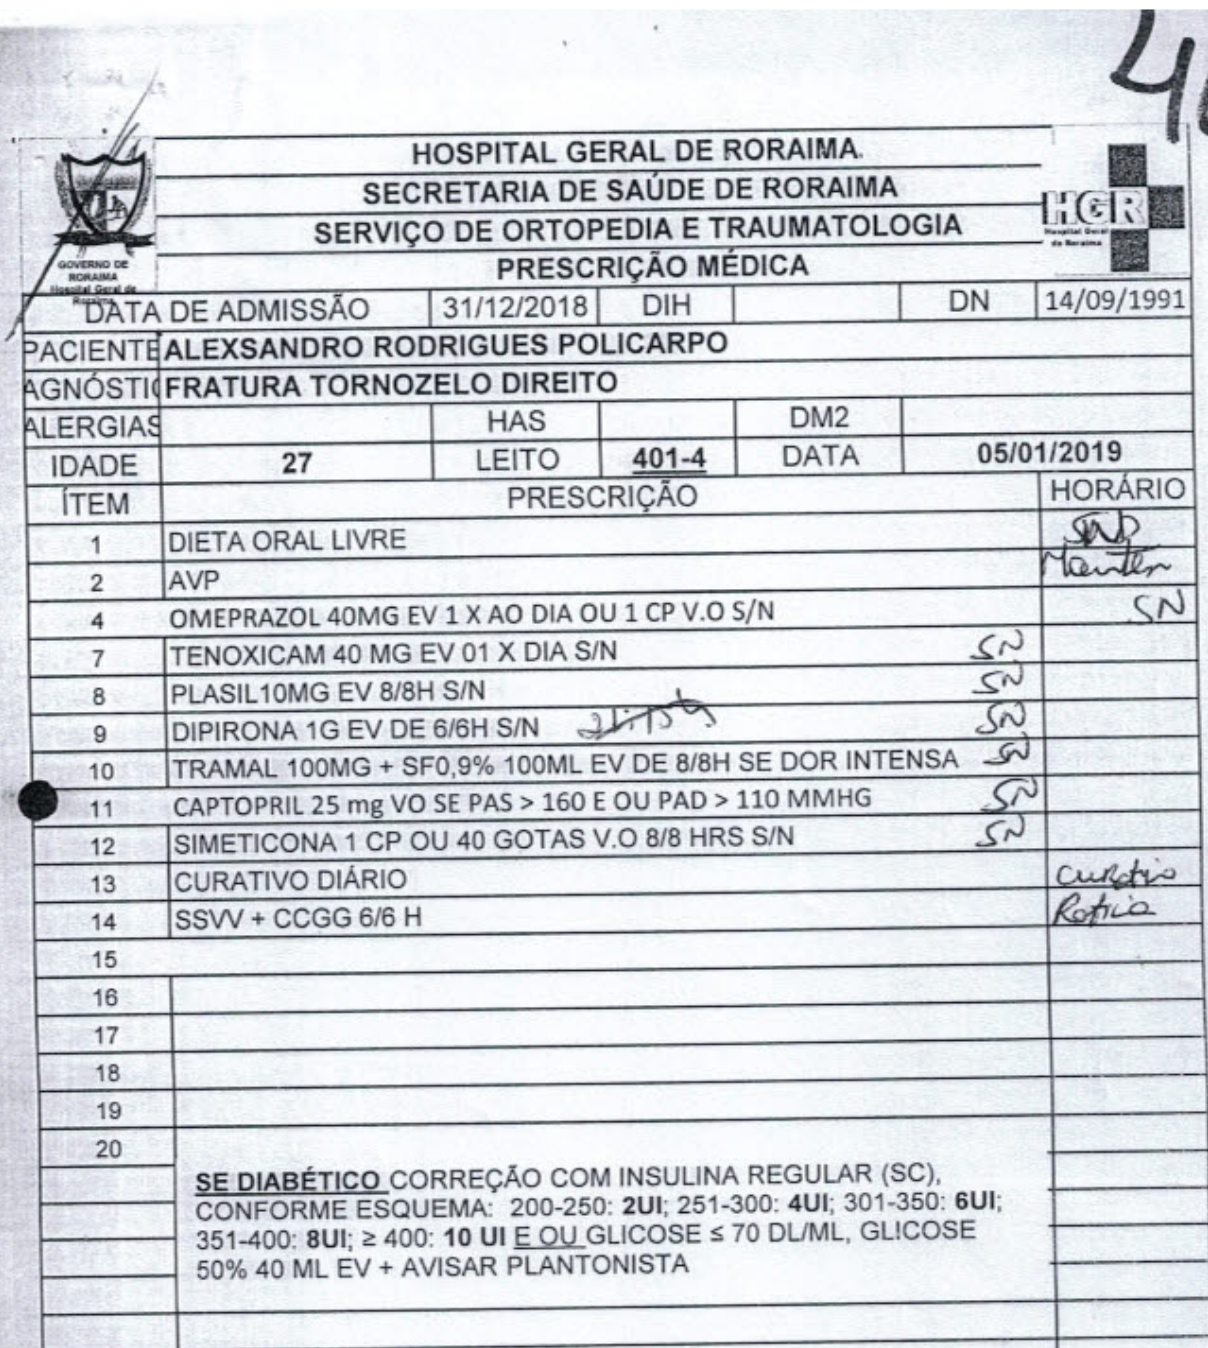 HOSPITAL GERAL DE RORAIMA.
SECRETARIA DE SAÚDE DE RORAIMA
SERVIÇO DE ORTOPEDIA E TRAUMATOLOGIA
PRESCRIÇÃO MÉDICA
GOVERNO DE
RORAIMA
Hospital Geral de
Roraima
HGR
Hospital Geral
de Roraima
DATA DE ADMISSÃO 31/12/2018 DIH DN 14/09/1991
PACIENTE ALEXSANDRO RODRIGUES POLICARPO
AGNÓSTIC FRATURA TORNOZELO DIREITO
ALERGIAS HAS DM2
IDADE 27 LEITO 401-4 DATA 05/01/2019
ÍTEM PRESCRIÇÃO HORÁRIO
1 DIETA ORAL LIVRE SND
2 AVP Manter
4 OMEPRAZOL 40MG EV 1 X AO DIA OU 1 CP V.O S/N SN
7 TENOXICAM 40 MG EV 01 X DIA S/N SN
8 PLASIL10MG EV 8/8H S/N SN
9 DIPIRONA 1G EV DE 6/6H S/N SN
10 TRAMAL 100MG + SF0,9% 100ML EV DE 8/8H SE DOR INTENSA SN
11 CAPTOPRIL 25 mg VO SE PAS > 160 E OU PAD > 110 MMHG SN
12 SIMETICONA 1 CP OU 40 GOTAS V.O 8/8 HRS S/N SN
13 CURATIVO DIÁRIO curativo
14 SSVV + CCGG 6/6 H Rotina
15
16
17
18
19
20
SE DIABÉTICO CORREÇÃO COM INSULINA REGULAR (SC),
CONFORME ESQUEMA: 200-250: 2UI; 251-300: 4UI; 301-350: 6UI;
351-400: 8UI; ≥ 400: 10 UI E OU GLICOSE ≤ 70 DL/ML, GLICOSE
50% 40 ML EV + AVISAR PLANTONISTA